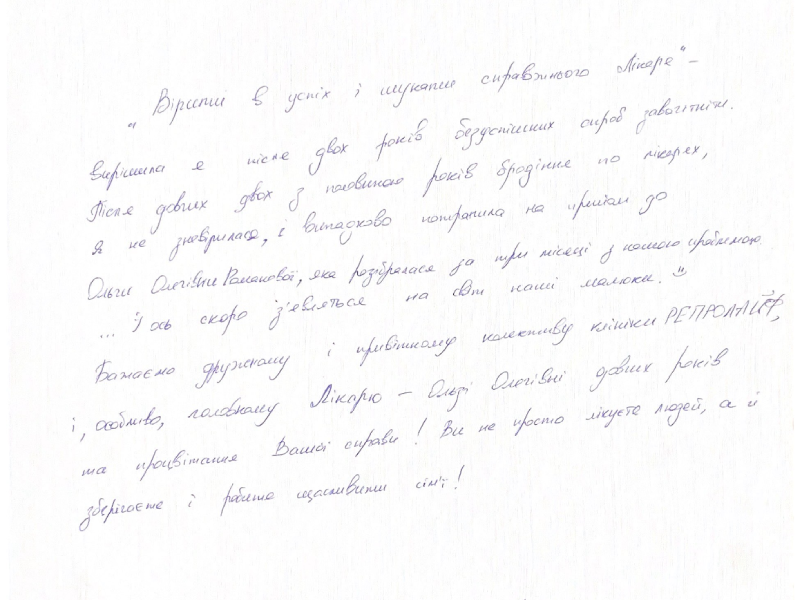 "Вірити в успіх і шукати справжнього Лікаря" –
вирішила я після двох років безуспішних спроб завагітніти.
Після довгих двох з половиною років бродіння по лікарях,
я не зневірилася, і випадково потрапила на прийом до
Ольги Олегівни Романової, яка розібралася за три місяці з нашою проблемою.
... І ось скоро з'являться на світ наші малюки. ☺
Бажаємо дружному і привітному колективу клініки РЕПРОЛАЙФ,
і, особливо, головному Лікарю – Ользі Олегівні довгих років
та процвітання Вашої справи! Ви не просто лікуєте людей, а й
зберігаєте і робите щасливими сім'ї!